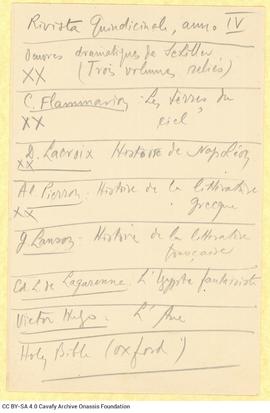 Rivista Quindicinale, anno IV
Oeuvres dramatiques de Schiller
XX (Trois volumes reliés)
C. Flammarion - Les terres du
XX ciel
D. Lacroix Histoire de Napoléon
XX
Al Pierron - Histoire de la littérature
XX grecque
G. Lanson - Histoire de la littérature
française
L. de Lagarenne. L'Egypte fantaisiste
Victor Hugo - L'Ane
Holy Bible (Oxford)
CC BY-SA 4.0 Cavafy Archive Onassis Foundation